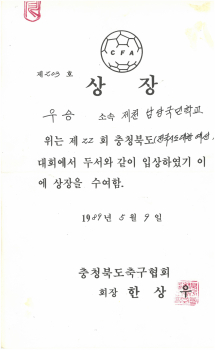 CFA
제203호
상장
우승 소속 제천 남당국민학교
위는 제22회 충청북도
대회에서 두서와 같이 입상하였기 이
에 상장을 수여함.
1989년 5월 9일
충청북도축구협회
회장 한상우